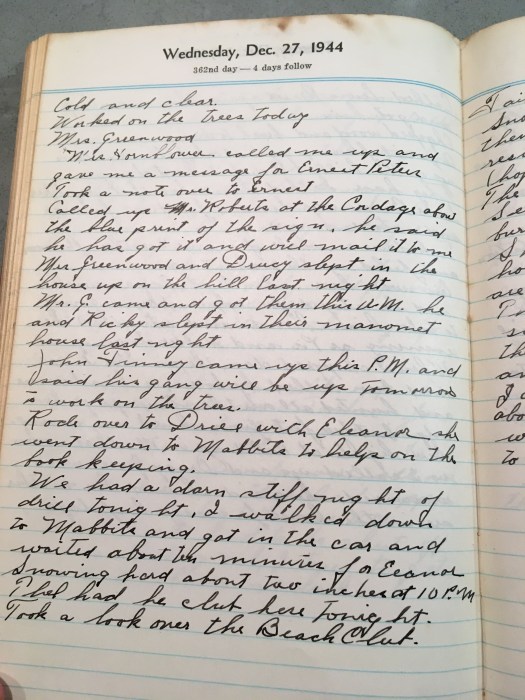 Wednesday, Dec. 27, 1944
362nd day — 4 days follow
Cold and clear.
Worked on the trees today
Mrs. Greenwood
Mrs. Hornblower called me up and
gave me a message for Ernest Peters
Took a note over to Ernest
Called up Mr. Roberts at the Cordage about
the blue print of the sign, he said
he has got it and will mail it to me
Mrs Greenwood and Drucy slept in the
house up on the hill last night
Mr. G. came and got them this A.M. he
and Ricky slept in their manomet
house last night
John Finney came up this P.M. and
said his gang will be up tomorrow
to work on the trees.
Rode over to Dries with Eleanor she
went down to Mabbits to helps on the
book keeping.
We had a darn stiff night of
drill tonight, I walked down
to Mabbits and got in the car and
waited about ten minuies for Eeanor
Snowing hard about two inches at 10 P.M
Phel had he club here tonight.
Took a look over the Beach Club.